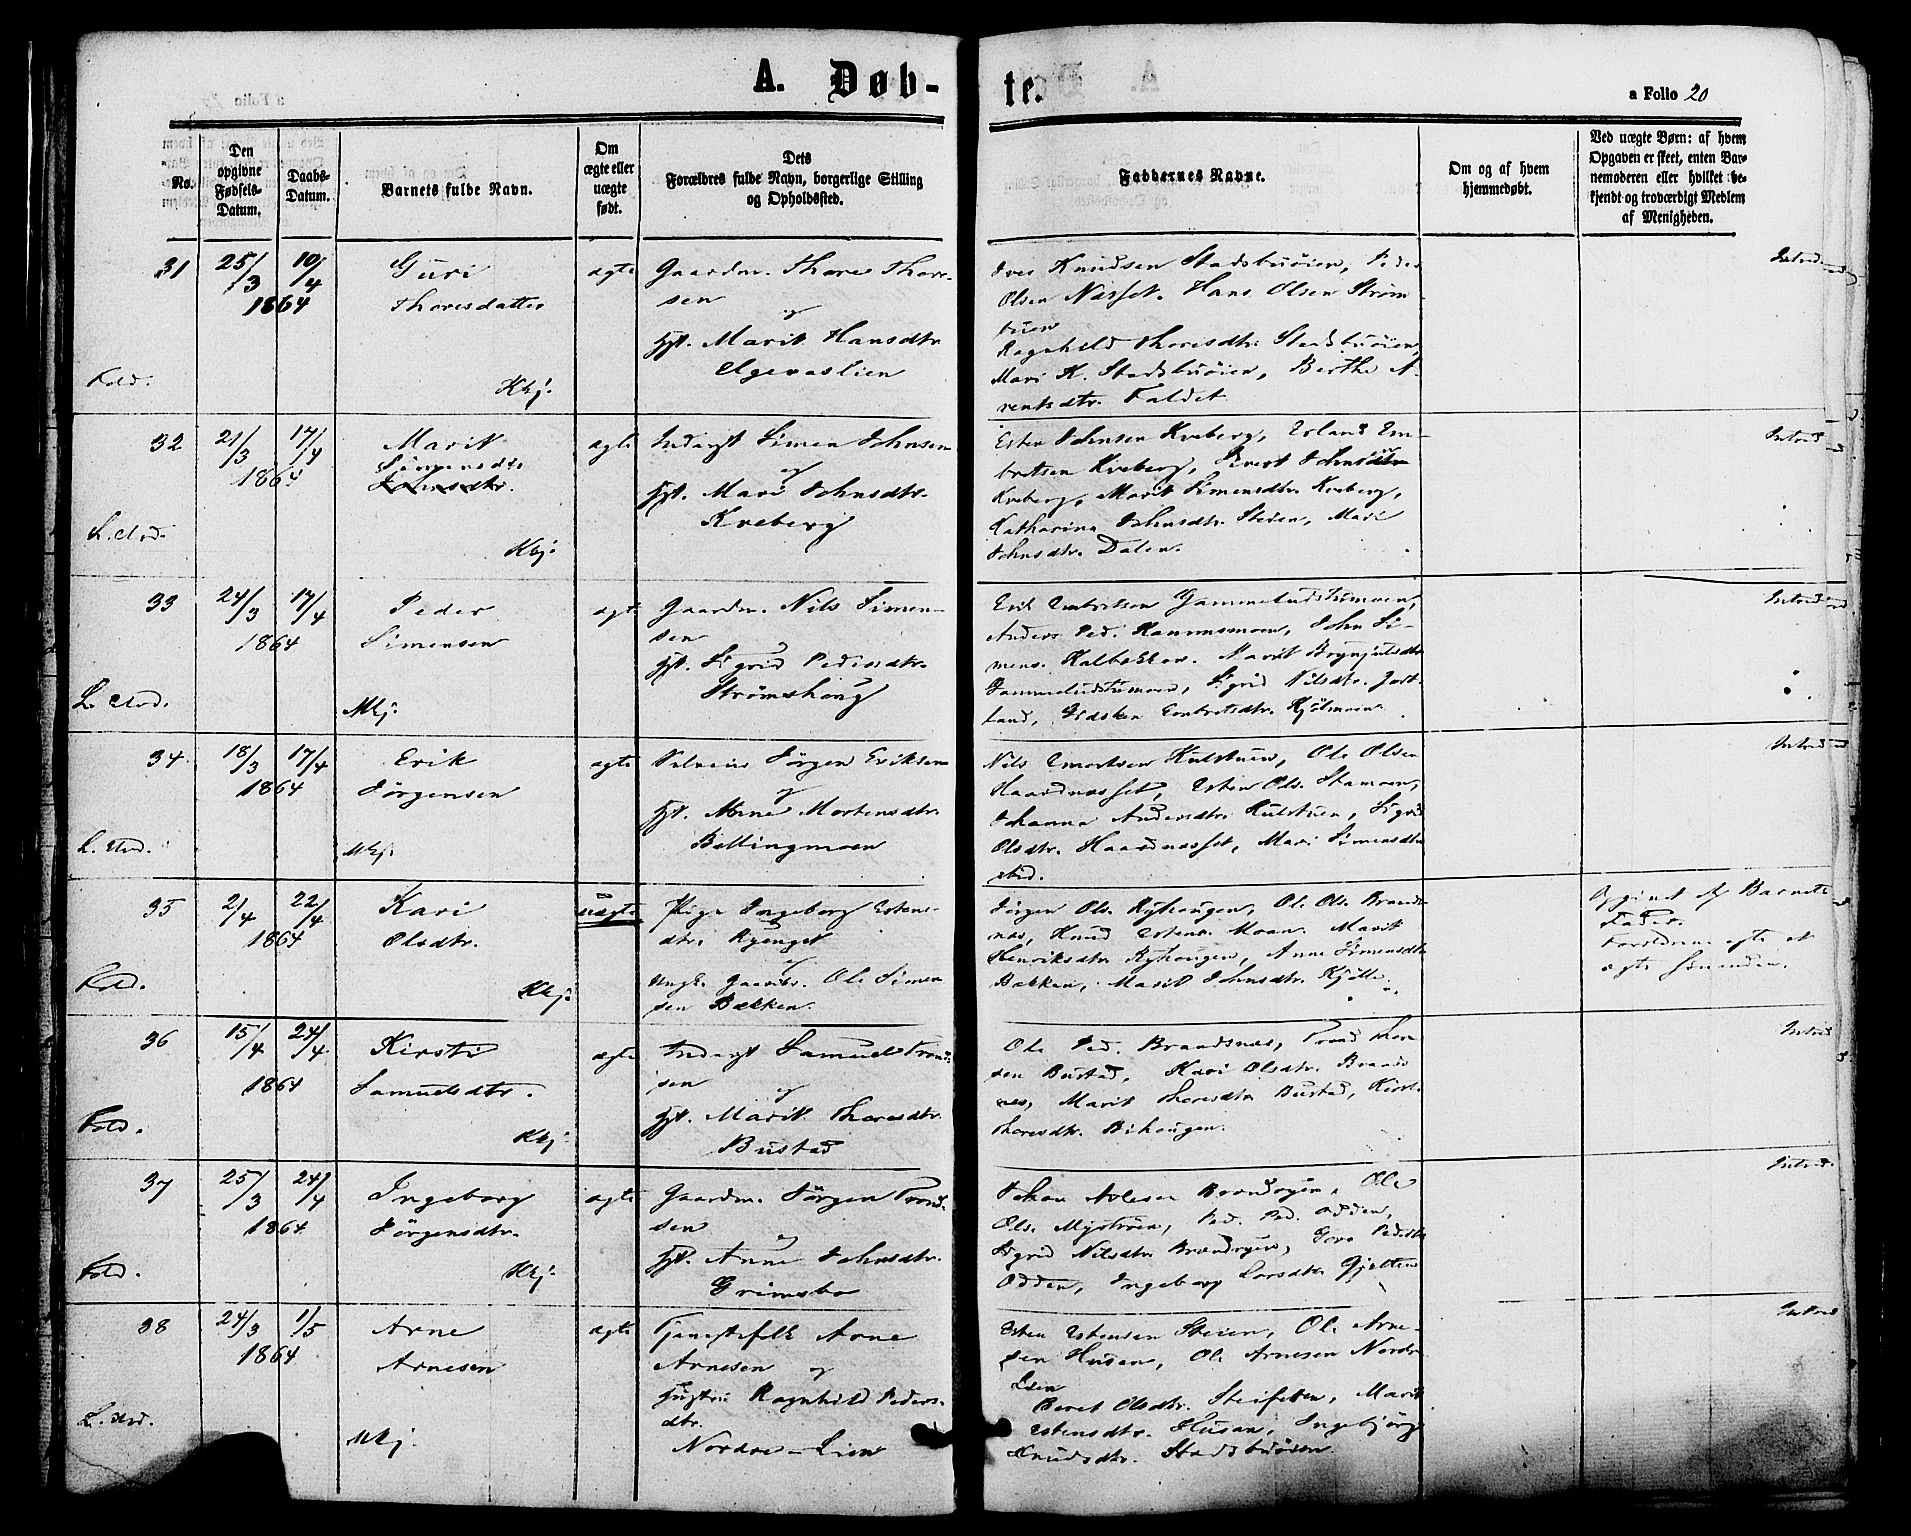 A. Døb-
te.
a Folio 20
No.
Den
opgivne
Fødsels-
Datum.
Daabs-
Datum.
Barnets fulde Navn.
Om
ægte eller
uægte
født.
Dets
Forældres fulde Navn, borgerlige Stilling
og Opholdssted.
Faddernes Navne.
Om og af hvem
hjemmedøbt.
Ved uægte Børn: af hvem
Opgaven er skeet, enten Bar-
nemoderen eller hvilket be-
kjendt og troværdigt Medlem
af Menigheden.
31
25/3
10/4
1864
Guri
Thoresdatter
Kkj.
Fold.
ægte
Gaardm. Thore Thore-
sen
og
Hst. Marit Hansdtr.
Knudsen Stadsbuøien, Peder
Olsen Næsset. Hans Olsen Strøm-
buen
Ragnhild Thoresdtr. Stadsbuøien,
Mari K. Stadsbuøien, Berthe A-
rentsdtr. Faldet
Introd.
32
21/3
17/4
1864
Marit
Simensdtr.
Johnsdtr.
Kkj.
ægte
Inderst Simen Johnsen
og
Hst. Mari Johnsdtr.
Kveberg
Esten Johnsen Kveberg, Erland Em-
bretsen Kveberg, Sivert Johnsdtr
Kveberg, Marit Simensdtr. Kveberg,
Katharina Johnsdtr. Steien, Mari
Johnsdtr. Dalen.
Introd
33
24/3
17/4
1864
Peder
Simensen
Mkj.
ægte
Gaardm. Nils Simen-
sen
og
Hst. Sigrid Pedersdtr.
Strømshaug
Erik Embretsen
Anders Ped. John Si-
mens. Kalbækken. Marit
Sigrid Nilsdtr.
Embretsdtr. Kjølmoen
Introd
34
18/3
17/4
1864
Erik
Jørgensen
Mkj.
ægte
Jørgen Eriksen
og
Hst. Anne Mortensdtr.
Bellingmoen
Nils Hulstuen, Ole Olsen
Haardnæsset, Esten Ols. Stamoen,
Johanna Andersdtr. Hulstuen, Sigrid
Olsdtr. Haardnæsset, Mari Simensdtr
stid.
Introd
35
2/4
22/4
1864
Kari
Olsdtr.
Kkj.
Fold.
uægte
Pige Ingeborg Estens-
dtr. Ryenget
og
Ungk. Gaardbr. Ole Simen
sen Bækken.
Jørgen Ols. Ryhaugen, Ole Ols. Brands-
næs, Knud Estens. Moan. Marit
Henriksdtr. Ryhaugen, Anne Simensdtr
Bækken, Marit Johnsdtr. Kjølle
Opgivet af Barnets
Fader.
Forældrene
36
15/4
24/4
1864
Kirsti
Samuelsdtr.
Kkj.
Fold.
ægte
Inderst Samuel Trond-
sen
og
Hst. Marit Thoresdtr.
Bustad
Ole Ped. Brandsnæs, Trond Thor-
sen Bustad, Kari Olsdtr. Brands-
næs, Marit Thoresdtr Bustad, Kirsti
Thoresdtr. Bihaugen.
Introd
37
25/3
24/4
1864
Ingeborg
Jørgensdtr.
Kkj.
Fold.
ægte
Gaardm. Jørgen Trond-
sen
og
Hst. Anne Johnsdtr.
Grimsbo
Johan Olesen Brændøien, Ole
Ols. Myströen, Ped. Ped. Odden,
Sigrid Nilsdtr. Brændøien, Goro Pedersdtr
Odden, Ingeborg Larsdtr. Gjelten
Introd.
38
24/3
1/5
1864
Arne
Arnesen
Mkj.
ægte
Tjenestefolk Arne
Arnesen og
Hustru Ragnhild Peders-
dtr.
Nordre-Lien
Esten Estensen Steien, Ole Arne-
sen Husan, Ole Arnesen Nordre
Lien
Beret Olsdtr. Steifetten, Marit
Estensdtr. Husan, Ingebjørg
Knudsdtr. Stadsbuøien
Introd